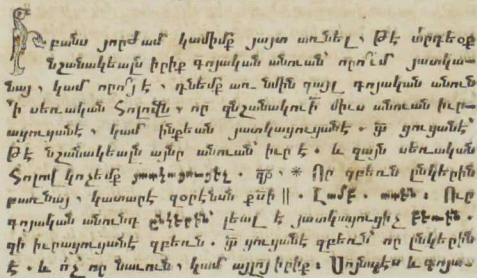 Ի բանս յորժամ կամիմք յայտ առնել, թէ ա՛րդեօք
նշանակեալն իրիք գոյական անուան՝ որո՛ւմ յատկա-
նայ, կամ որո՛յ է, դնեմք առ նմին զայլ գոյական անուն
՚ի սեռական հոլովն, որ միւս անուան իւր-
ացուցանէ, կամ ինքեան յատկացուցանէ. ցուցանէ՝
թէ նշանակեալն այնր անուան՝ իւր է. և զայն սեռական
հոլով կոչեմք յատկացուցիչ. * Որ զբեռն ընկերին
բառնայ, կատարէ զօրէնսն քսի ‖. Ուր
գոյական անունդ ընկերին՝ լեալ է յատկացուցիչ բեռին.
զի իւրացուցանէ զբեռն. ցուցանէ զբեռն՝ որ ընկերին
է. և ո՛չ որ նաւուն, կամ այլոյ իրիք: Սոյնպէս և գոյա-